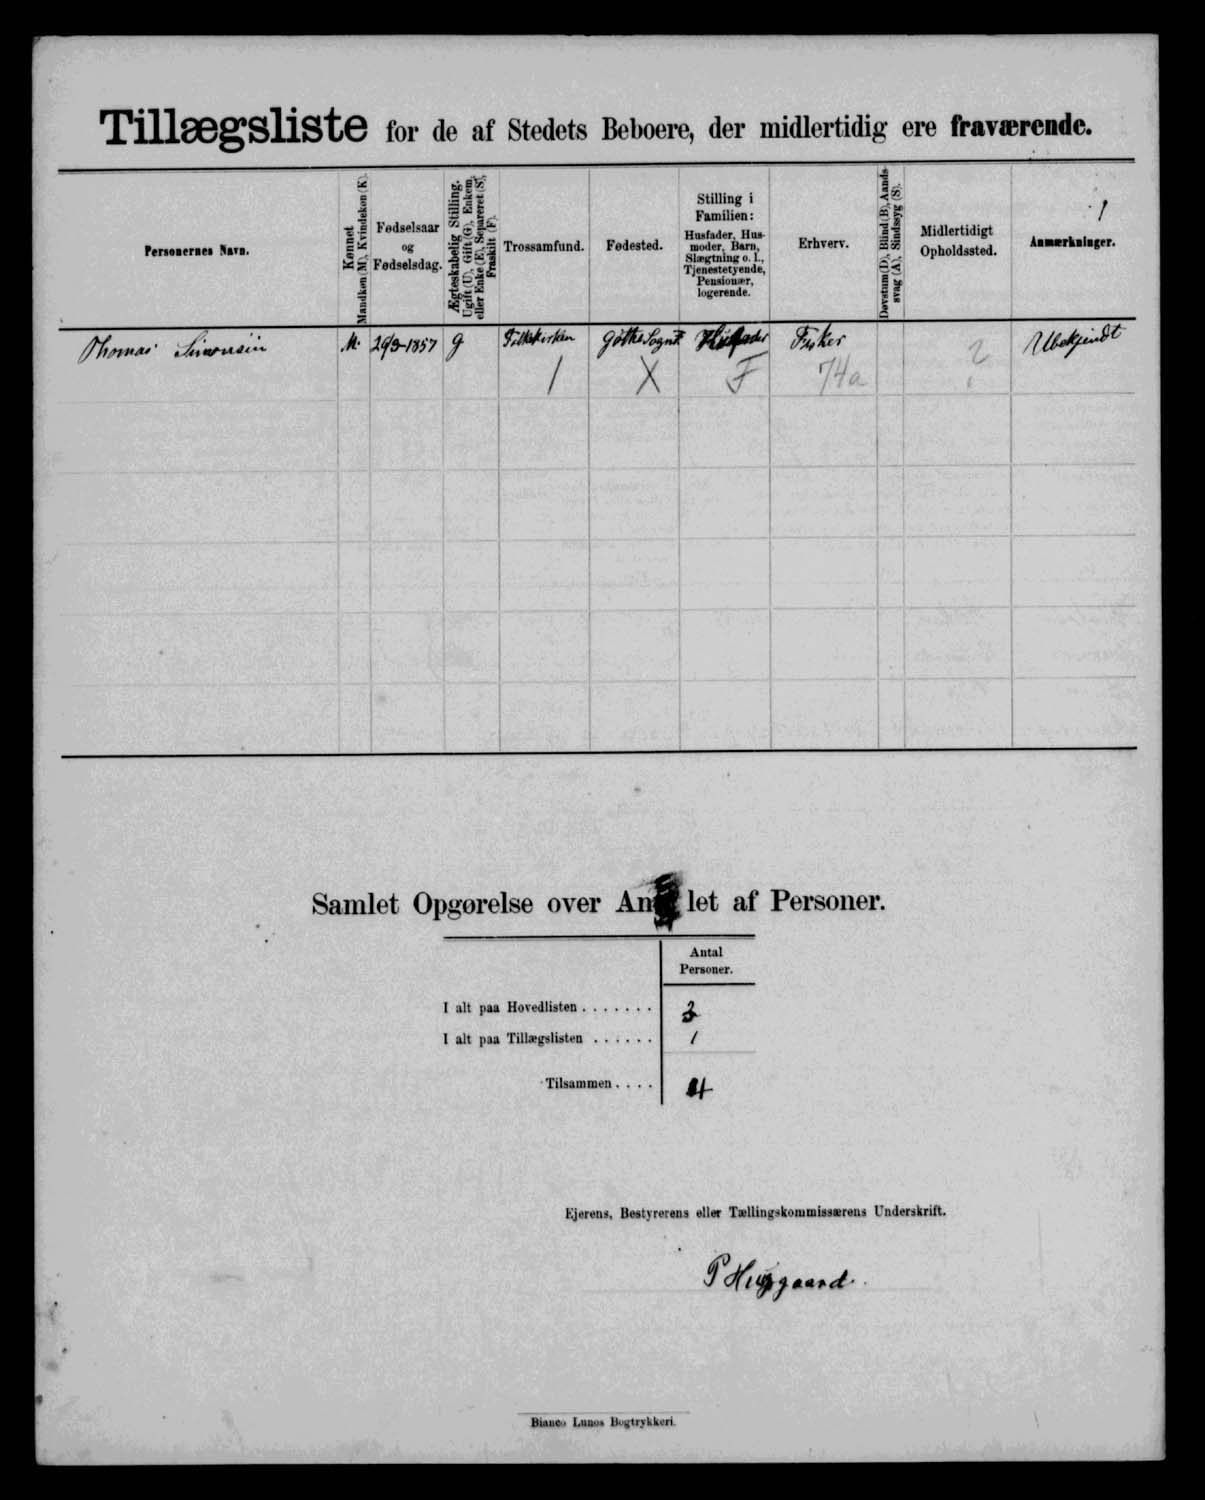 Tillægsliste for de af Stedets Beboere, der midlertidig ere fraværende.
Personernes Navn.
Kønnet
Mandkøn (M), Kvindekøn (K).
Fødselsaar
og
Fødselsdag.
Ægteskabelig Stilling.
Ugift (U), Gift (G), Enkem.
eller Enke (E), Separeret (S),
Fraskilt (F).
Trossamfund.
Fødested.
Stilling i
Familien:
Husfader, Hus-
moder, Barn,
Slægtning o. l.,
Tjenestetyende,
Pensionær,
logerende.
Erhverv.
Døvstum (D), Blind (B), Aands-
svag (A), Sindssyg (S).
Midlertidigt
Opholdssted.
1
Anmærkninger.
Thomas Simonsen M. 1857 G Folkekirken Gøthe Sogn Husfader Fisker Ubekjendt
1 X F 74a ?
Samlet Opgørelse over An let af Personer.
Antal
Personer.
I alt paa Hovedlisten . . . . . . . 3
I alt paa Tillægslisten . . . . . . 1
Tilsammen . . . . 4
Ejerens, Bestyrerens eller Tællingskommissærens Underskrift.
P
Bianco Lunos Bogtrykkeri.